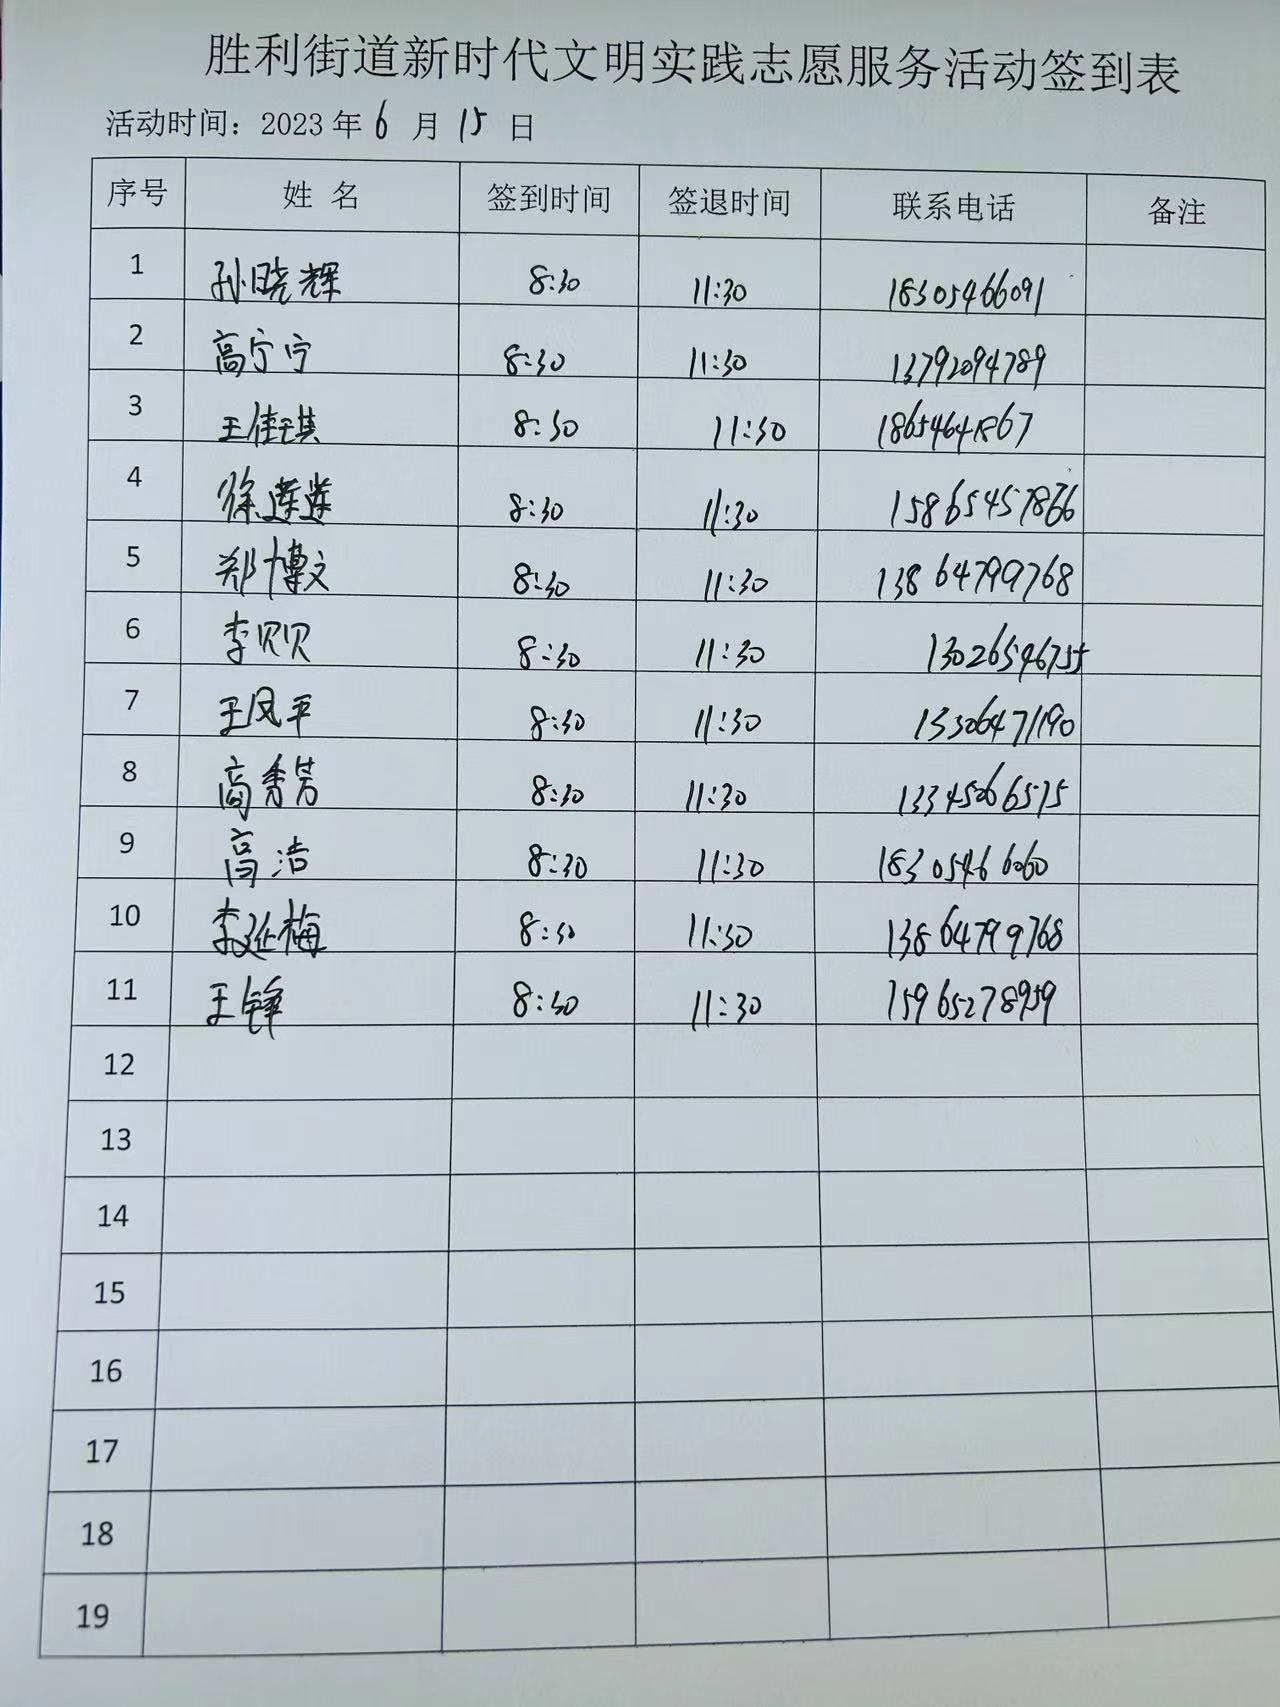 胜利街道新时代文明实践志愿服务活动签到表
活动时间：2023年6月15日
序号 姓 名 签到时间 签退时间 联系电话 备注
1 孙晓辉 8:30 11:30 18305466091
2 高宁宁 8:30 11:30 13792094789
3 王佳琪 8:30 11:30 18654641867
4 徐莲莲 8:30 11:30 15865457866
5 郑博文 8:30 11:30 13864799768
6 李贝贝 8:30 11:30 13026546755
7 王凤平 8:30 11:30 13306471190
8 高秀芳 8:30 11:30 13345266575
9 高洁 8:30 11:30 18305466060
10 李延梅 8:30 11:30 13864799768
11 王锋 8:30 11:30 15965278959
12
13
14
15
16
17
18
19